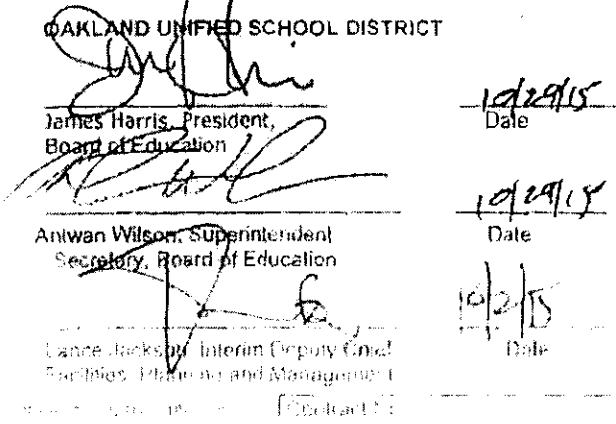 OAKLAND UNIFIED SCHOOL DISTRICT
10/29/15
James Harris, President,
Date
Board of Education
10/29/15
Antwan Wilson, Superintendent
Date
Secretary, Board of Education
Lance Jackson, Interim Deputy Chief
Date
Facilities, Planning and Management